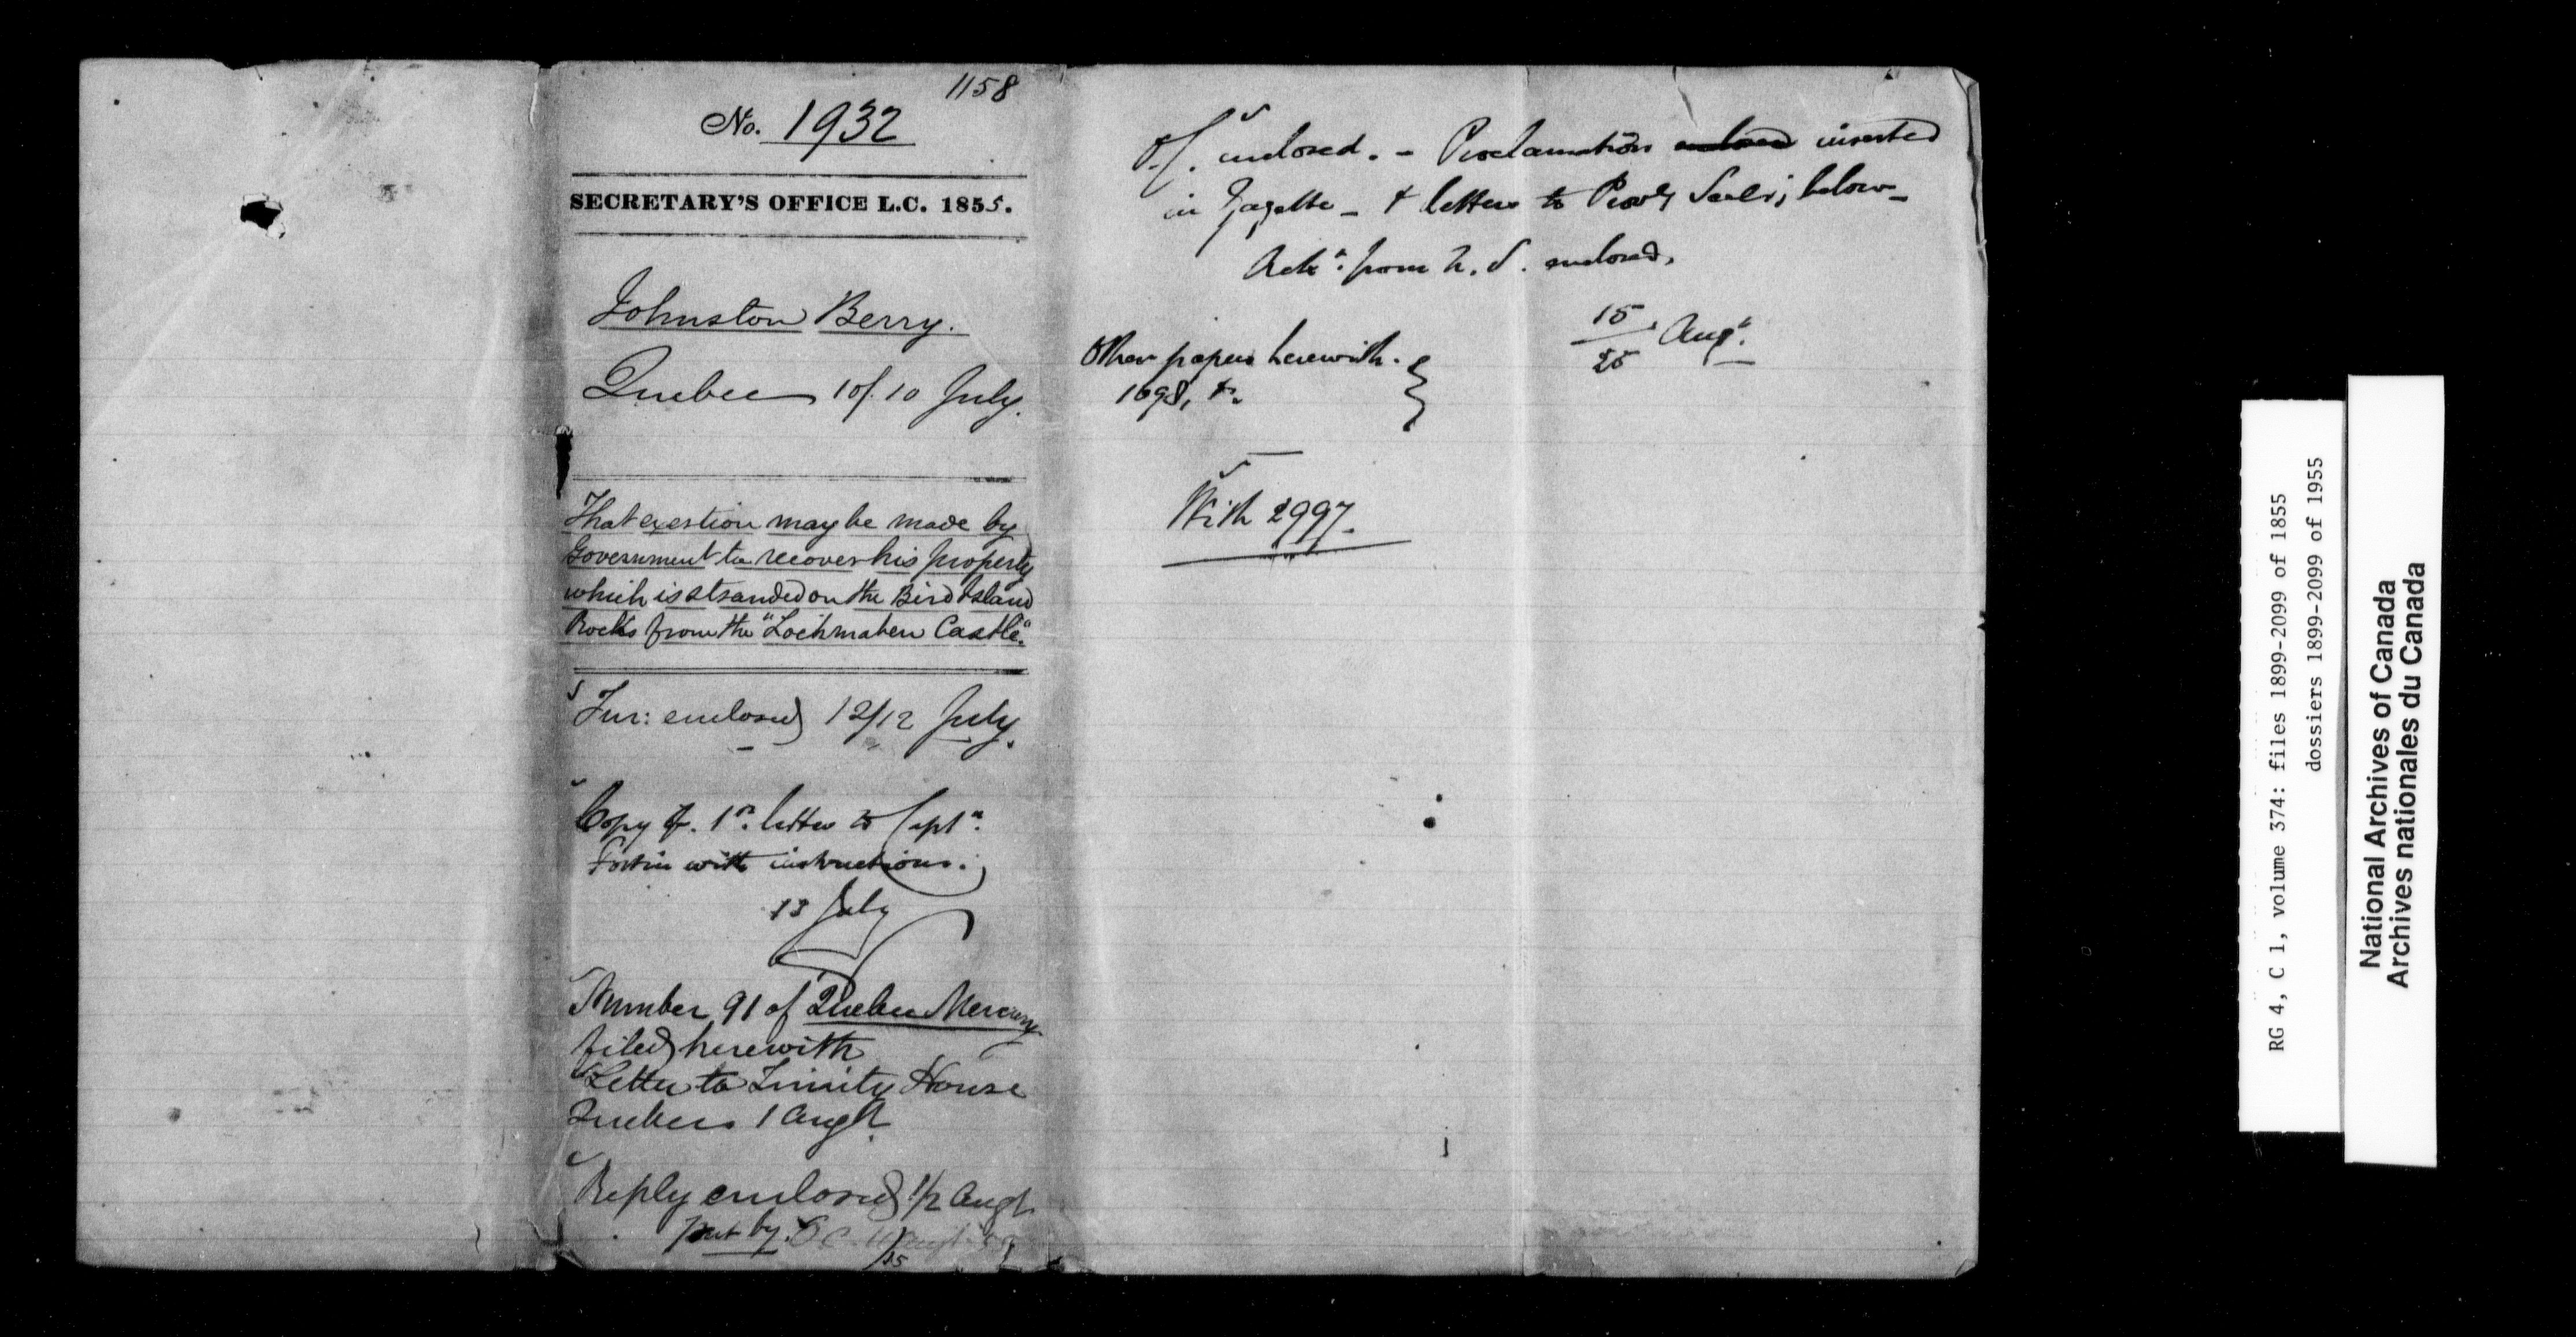 1158
No. 1932
SECRETARY'S OFFICE L.C. 1855.
Johnston Berry.
Quebec 10/10 July.
That exertion may be made by
Government to recover his property
which is stranded on the Bird Island
Rocks from the "Lochmaben Castle".
Fur: enclosed 12/12 July.
Copy of 1st. letter to Captn.
Fortin with instructions.
13 July
Number 91 of Quebec Mercury
filed herewith
Letter to Trinity House
Quebec 1 Augt.
Reply enclosed 1/2 Augt.
put by.
enclosed. - Proclamation inserted
in Gazette - & letters to below -
from enclosed.
15/25 Augt.
Other papers herewith.
1698, &c.
With 2997.
RG 4, C 1, volume 374: files 1899-2099 of 1855
dossiers 1899-2099 of 1955
National Archives of Canada
Archives nationales du Canada